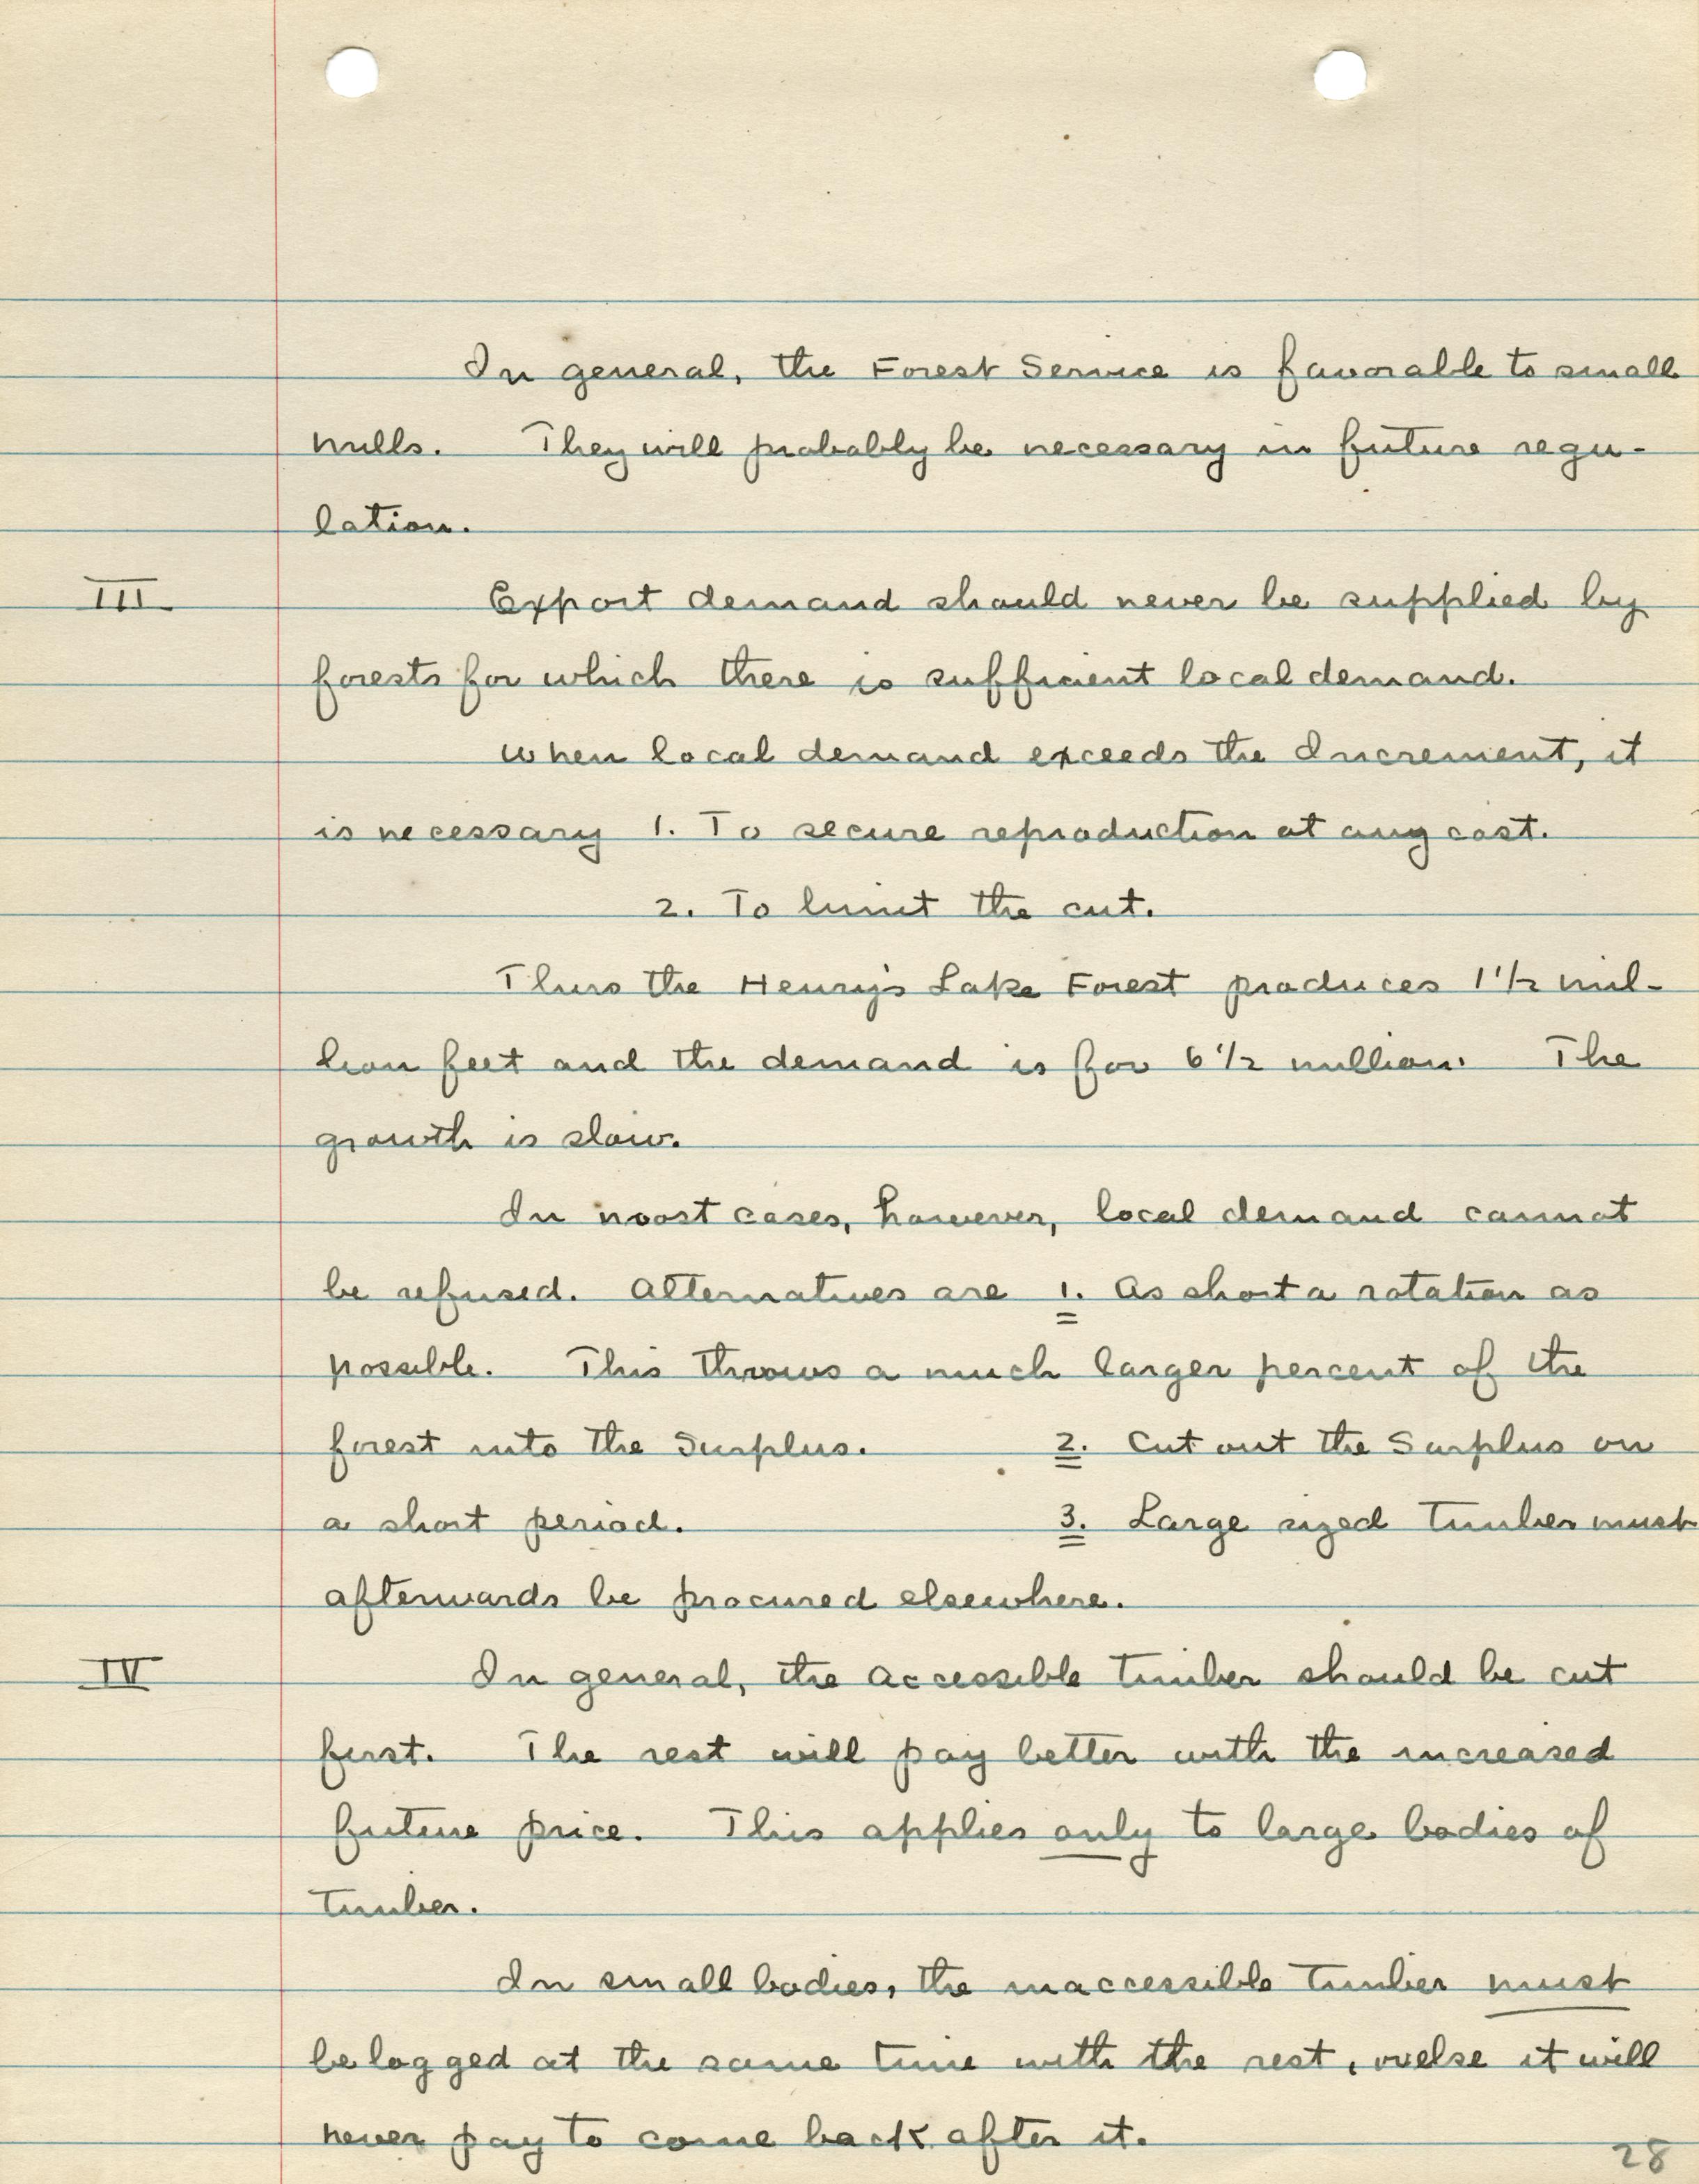 In general, the Forest Service is favorable to small
mills. They will probably be necessary in future regu-
lation.
III Export demand should never be supplied by
forests for which there is sufficient local demand.
When local demand exceeds the Increment, it
is necessary 1. To secure reproduction at any cost.
2. To limit the cut.
Thus the Henrys Lake Forest produces 1 1/2 mil-
lion feet and the demand is for 6 1/2 million. The
growth is slow.
In most cases, however, local demand cannot
be refused. Alternatives are 1. As short a rotation as
possible. This throws a much larger percent of the
forest into the Surplus. 2. Cut out the Surplus on
a short period. 3. Large sized Timber must
afterwards be procured elsewhere.
IV In general, the accessible Timber should be cut
first. The rest will pay better with the increased
future price. This applies only to large bodies of
Timber.
In small bodies, the inaccessible Timber must
be logged at the same time with the rest, or else it will
never pay to come back after it.
28